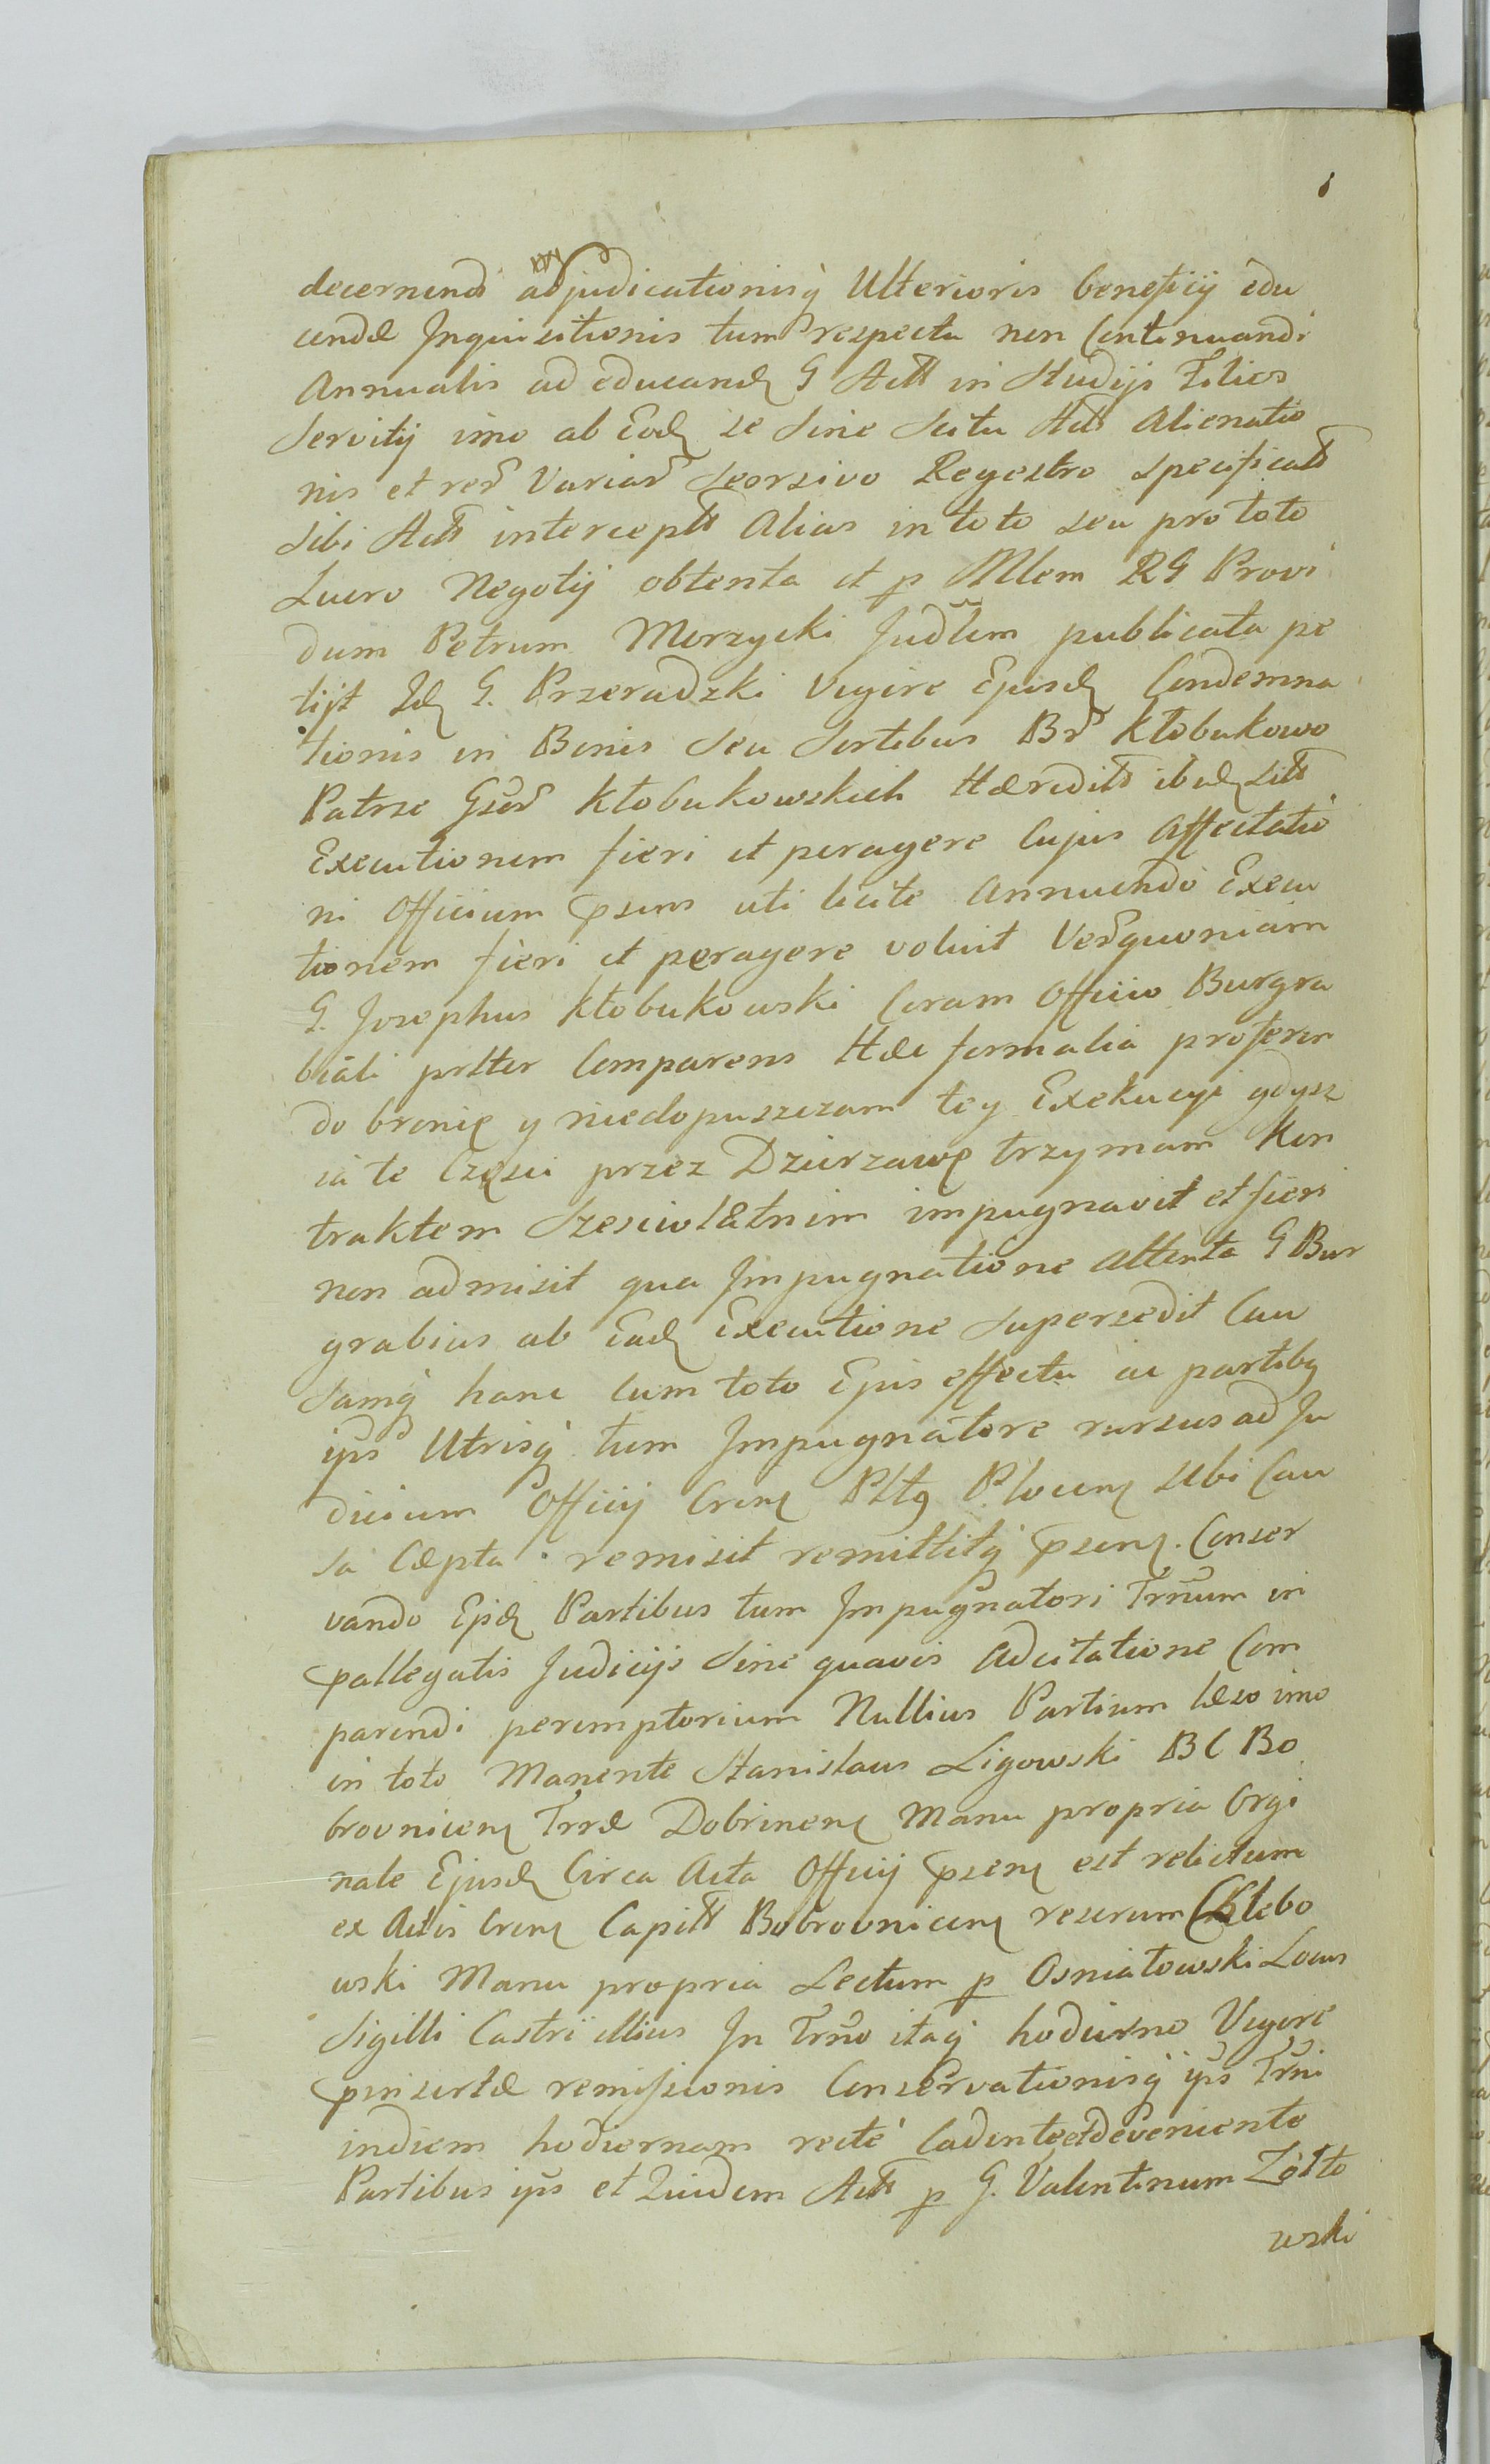 decernendi adjudicationisq Ulterioris beneficij edu
cendæ Inquisitionis tum respectu non Continuandi
Annualis ad educand G Actt in Studijs Filios
Servitij imo ab Eod se Sine Scitu Act Alienatio
nis et rer Variar Seorsivo Regestro specificatt
Sibi Actt intercept Alias in toto seu pro toto
Lucro Negotij obtenta et p Mllem RG Provi
dum Petrum Morzycki Judlem publicata pe
tijt Id G. Przeradzki Vigire Ejusd Condemna
tionis in Bonis Seu Sortibus Br Kłobukowo
Patrze Gser Kłobukowskich Hæredit ibid sitt
Executionem fieri et peragere Cujus Affectatio
ni Officium psens uti licite Annuendo Execu
tionem fieri et peragere voluit Verquoniam
G. Josephus Kłobukowski Coram Officio Burgra
biali prltter Comparens Hæc formalia proferen
do bronię y niedopuszczam tey Exekucyi gdysz
ia te Częsci przez Dzierzawę trzymam Kon
traktem Szesciolætnim impugnavit et fieri
non admisit qua Impugnatione Attenta G Bur
grabius ab Ead Executione Supersedit Cau
Samq hanc Cum toto Ejus effectu ac partibq
ijs Utrisq tum Impugnatore rursus ad Ju
dicium Officij Cren Pltq Plocen Ubi Cau
sa Cæpta remisit remittitq psen. Conser
vando Ejsd Partibus tum Impugnatori Trnum in
pallegatis Judicijs Sine quavis Adcitatione Com
parendi peremptorium Nullius Partium læso imo
in toto Manente Stanislaus Ligowski BC Bo
brovnicen Trræ Dobrinen Manu propria Orgi
nale Ejusd Circa Acta Officij psen est relictum
ex Actis Cren Capitt Bobrovnicen rescrum Chlebo
wski Manu propria Lectum p Osniatowski Locus
Sigilli Castri illius In Trno itaq hodierno Vigore
pinsertæ remissionis Conservationisq ijs Trni
indiem hodiernam recte Cadente et deveniente
Partibus ijs et Quidem Actt p G. Valentinum Zółto
wski